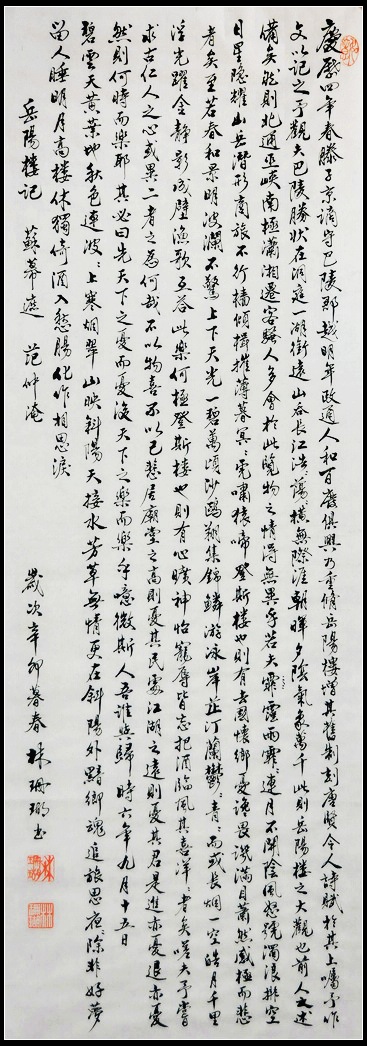 慶曆四年春滕子京謫守巴陵郡越明年政通人和百廢俱興乃重脩岳陽樓增其舊制刻唐賢今人詩賦於其上囑予作
文以記之予觀夫巴陵勝狀在洞庭一湖銜遠山吞長江浩:蕩:橫無際涯朝暉夕陰氣象萬千此則岳陽樓之大觀也前人之述
備矣然則北通巫峽南極瀟湘遷客騷人多會於此覽物之情得無異乎若夫霏霪雨霏:連月不開陰風怒號濁浪排空
日星隱耀山岳潛形商旅不行檣傾楫摧薄暮冥:虎嘯猿啼登斯樓也則有去國懷鄉憂讒畏譏滿目蕭然感極而悲
者矣至若春和景明波瀾不驚上下天光一碧萬頃沙鷗翔集錦鱗游泳岸芷汀蘭鬱:青:而或長烟一空皓月千里
浮光躍金靜影沉璧漁歌互答此樂何極登斯樓也則有心曠神怡寵辱皆忘把酒臨風其喜洋:者矣嗟夫予嘗
求古仁人之心或異二者之為何哉不以物喜不以己悲居廟堂之高則憂其民處江湖之遠則憂其君是進亦憂退亦憂
然則何時而樂耶其必曰先天下之憂而憂後天下之樂而樂乎噫微斯人吾誰與歸 時六年九月十五日
碧雲天黃葉地秋色連波:上寒烟翠山映斜陽天接水芳草無情更在斜陽外黯鄉魂追旅思夜:除非好夢
留人睡明月高樓休獨倚酒入愁腸化作相思淚
岳陽樓記 蘇幕遮 范仲淹 歲次辛卯暮春 林珊瑚書